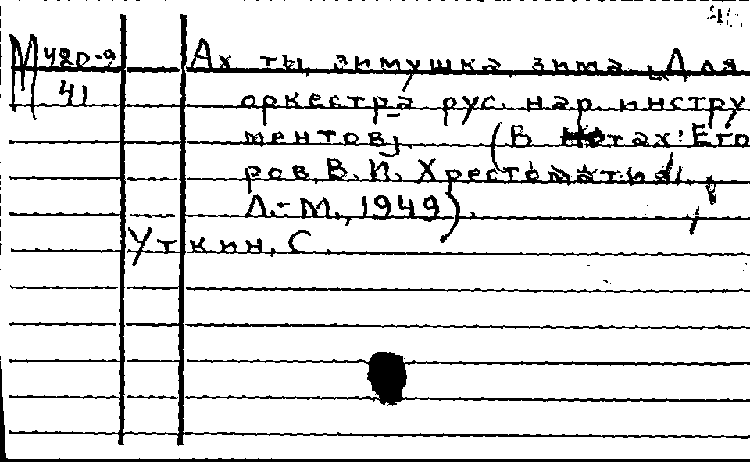 М 480-9 Ах ты, зимушка, зима. [Для
41 оркестра рус. нар. инстру
ментов]. (В нотах: Его
ров, В. И. Хрестоматия.
Л.-М., 1949).
Уткин, С.